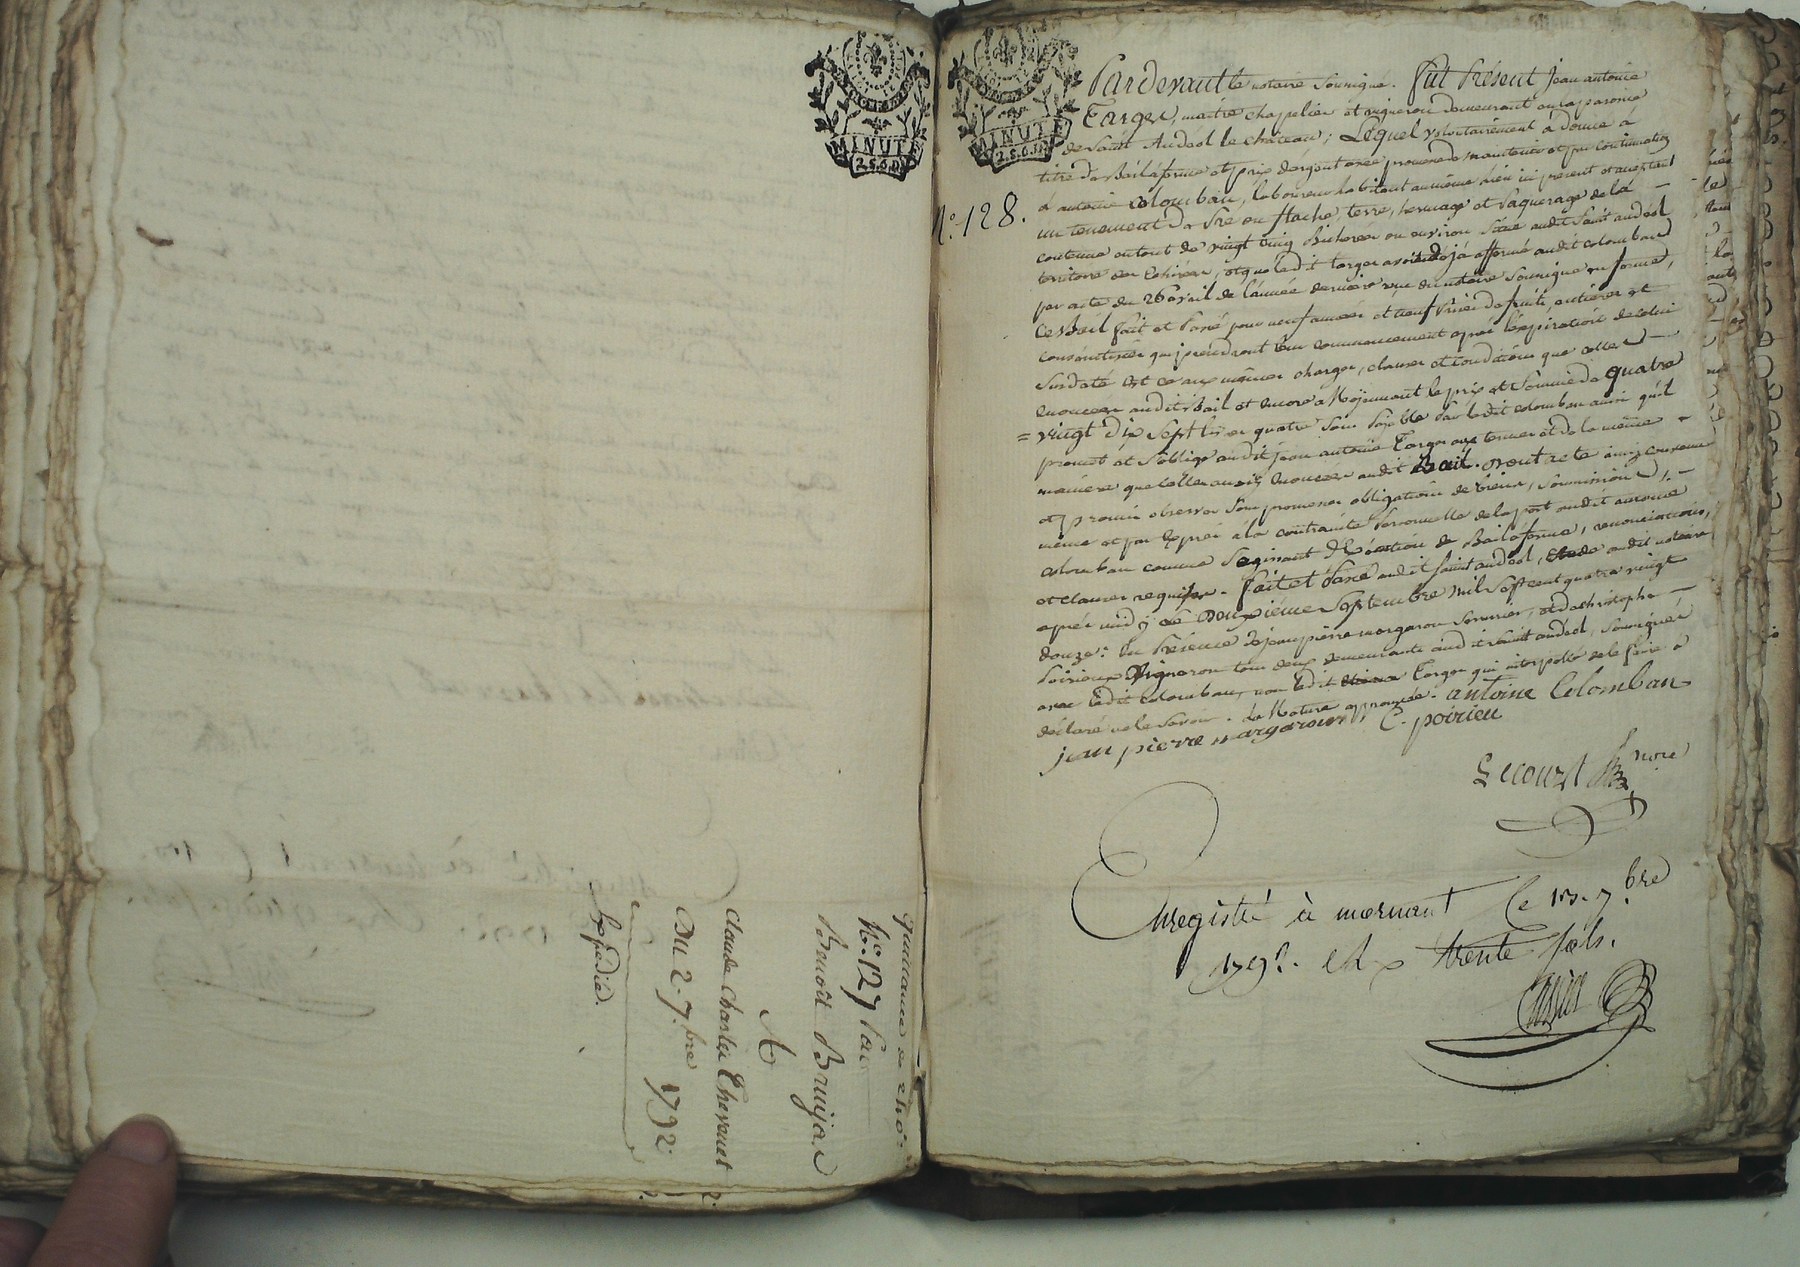 quittance de 240#
N.° 127 par
Benoit Bruyas
A
Claude Charles Thevenet
Du 2. 7.bre 1792.
Expédié.
MINUTE
2.S.6.D.
MINUTE
2.S.6.D.
N.° 128.
Pardevant le notaire soussigné. Fut Présent Jean antoine
Targe, maitre chapelier et vigneron demeurant en la paroisse
de Saint Andéol le chateau; Lequel volontairement a donné a
titre de Bail à ferme et prix d'argent avec promesse de maintenir et par continuation
a antoine Colomban, laboureur habitant au même lieu ici present et acceptant
un tenement de Pré ou flache, terre, hermage et Paquerage de la
contenue en tout de vingt cinq Bicherées ou environ Situé audit Saint andéol
territoire et que ledit targe avoit déjà affermé audit colomban
par acte du 26 avril de l'année derniere reçu du notaire soussigné en forme,
Ce Bail fait et Passé pour neuf années et neuf Prises de fruits entieres et
consécutives qui prendront leur commencement après l'expiration de celui
Susdaté est ce aux mêmes charges, clauses et conditions que celles
énoncées audit Bail et encore Moyennant le prix et Somme de quatre
= vingt Dix Sept livres quatre Sous Payable par ledit colomban ainsi qu'il
promet et S'oblige audit jean antoine Targe aux termes et de la même
maniere que celle aussi énoncée audit Bail. Dont acte ainsi convenu
et promis observer Sous promesses obligations de biens, soumissions,
même et par Exprès à la contrainte Personnelle de la part audit antoine
colomban comme Sagissant d'Exécution de Bail à ferme, renonciations,
et clauses requises. Fait et Passé audit Saint andéol, Etude audit notaire
après midi ce Deuxième Septembre mil Sept cent quatre vingt
douze: En Présence de jean pierre margaron Sommier, et de christophe
Poirieux Vigneron tous deux demeurants audit Saint andéol, Soussignés
avec ledit Colomban, non ledit Targe qui interpellé de le faire a
déclaré ne le Savoir. La Rature approuvée. antoine Colomban
jean pierre margaron C. poirieu
not.re
Enregistré à mornant le 13. 7.bre
1792. trente sols.